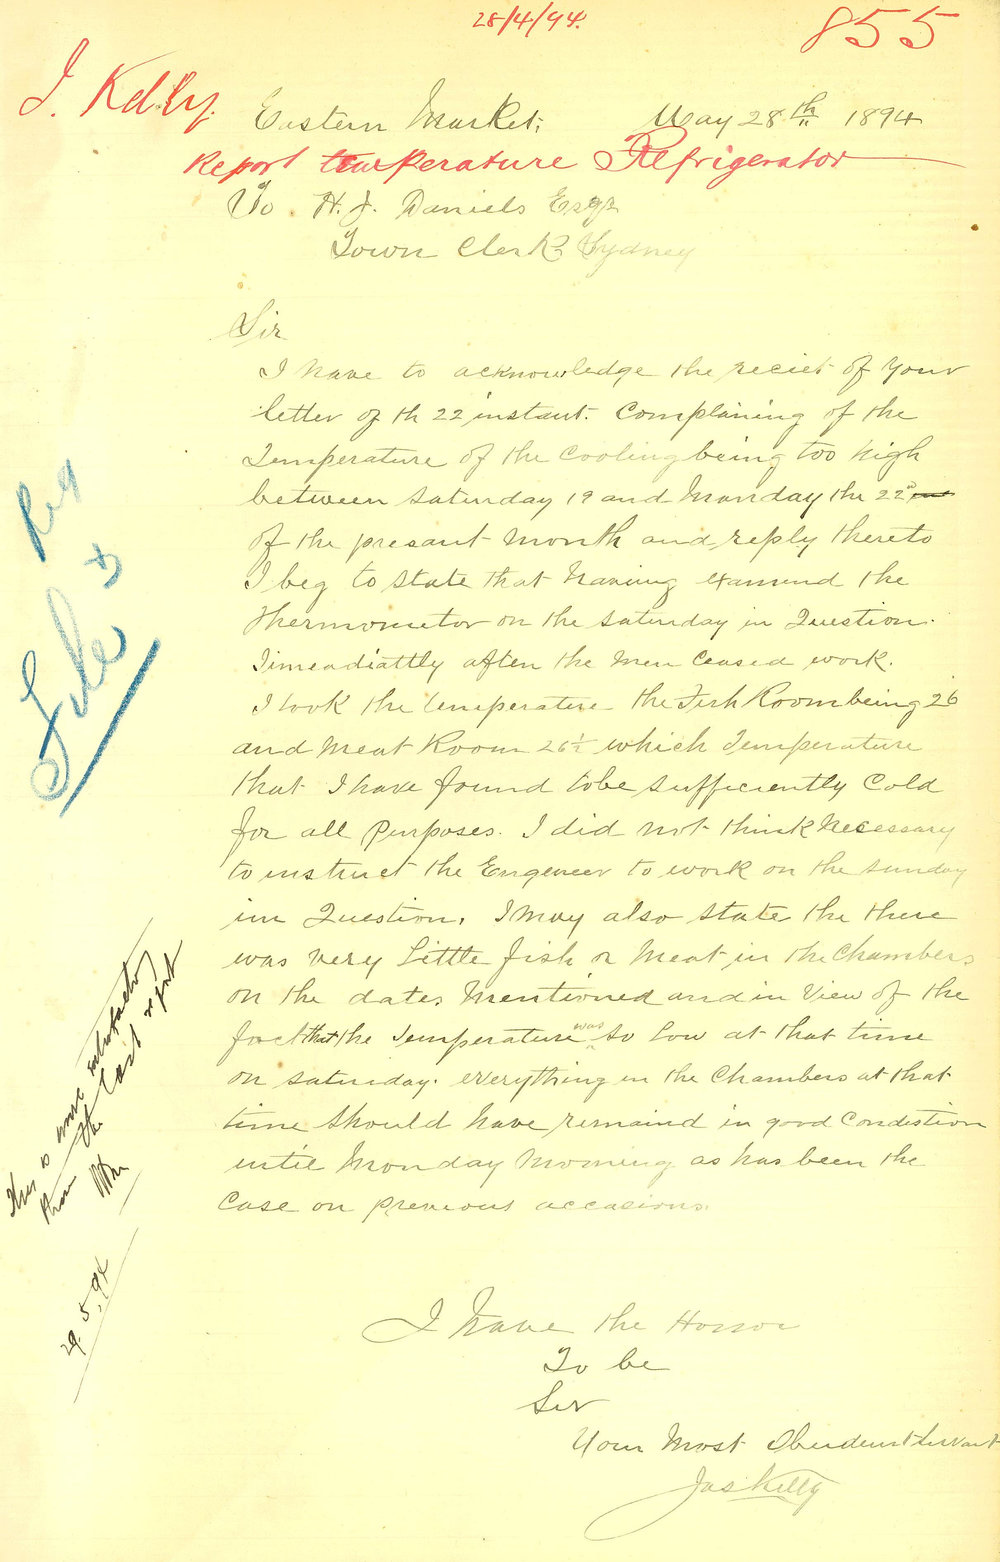 28/4/94.
855
J. Kelly.
Eastern Market, May 28th 1894
Report temperature Refrigerator
To H. J. Daniels Esqr
Town Clerk Sydney
Sir
I have to acknowledge the reciet of your
letter of th 22 instant. Complaining of the
Temperature of the Cooling being too high
between Saturday 19 and Monday the 22d
of the presant month and reply thereto
I beg to state that having examend the
Thermometor on the Saturday in Question.
Iimeadiattly after the men ceased work.
I took the temperature the Fish Room being 26
and Meat Room 26½ which Temperature
that I have found to be sufficiently Cold
for all Purposes. I did not think necessary
to instruct the Engeneer to work on the Sunday
in Question. I may also state the there
was very Little fish or Meat in the Chambers
on the dates Mentioned and in View of the
fact that the Temperature was so low at that time
on Saturday. everything in the Chambers at that
time should have remaind in good Condestion
until Monday Morning as has been the
Case on previous accasions.
I Have the Honor
To be
Sir
Your Most Obendient Servant
Jas Kelly
Reg
File
This is more satisfactory
than the last rept
29.5.94